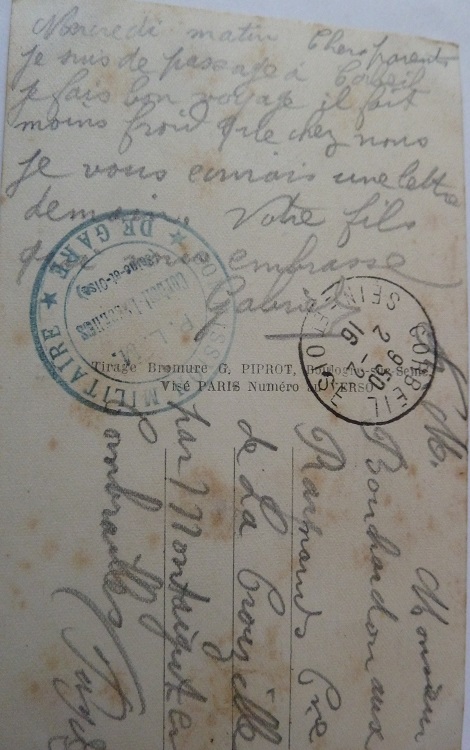 Mercredi matin Chers parents
je suis de passage à Corbeil
je fais bon voyage il fait
moins froid que chez nous
je vous enverais une lettre
demain. Votre fils
qui vous embrasse
Gabriel
COMMISSION MILITAIRE ★ DE GARE ★
(Seine-et-Oise)
CORBEIL
9 30
2 - 2
16
SEINE ET OISE
Tirage Bromure G. PIPROT, Boulogne-sur-Seine
Visé PARIS Numéro au VERSO
Monsieur
M. Bouchardon aux
Raymonds Cne
de La Crouzille
par Montaigut en
Combrailles